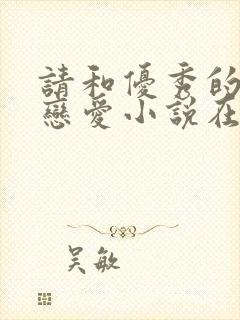 請和優秀的
戀愛小說在
吴敏